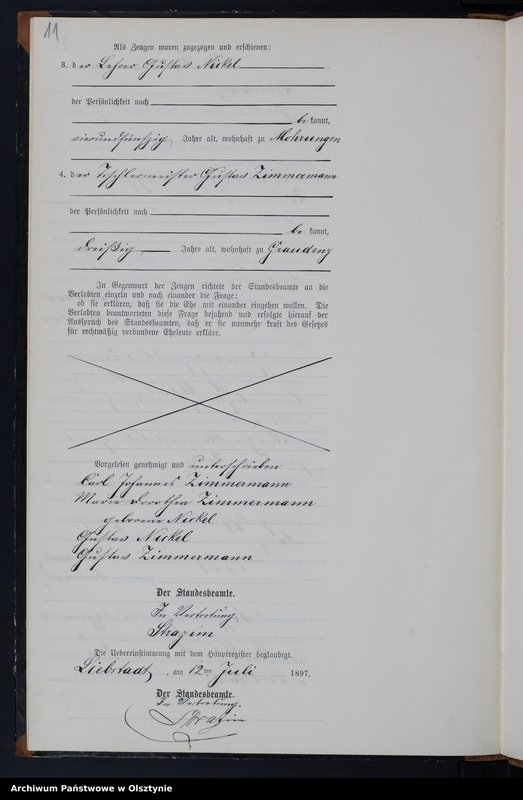 11
Als Zeugen waren zugezogen und erschienen:
3. der Lehrer Gustav Nickel
der Persönlichkeit nach
be kannt,
vierundfünfzig Jahre alt, wohnhaft zu Mohrungen
4. der Tischlermeister Gustav Zimmermann
der Persönlichkeit nach
be kannt,
dreißig Jahre alt, wohnhaft zu Graudenz
In Gegenwart der Zeugen richtete der Standesbeamte an die
Verlobten einzeln und nach einander die Frage:
ob sie erklären, daß sie die Ehe mit einander eingehen wollen. Die
Verlobten beantworteten diese Frage bejahend und erfolgte hierauf der
Ausspruch des Standesbeamten, daß er sie nunmehr kraft des Gesetzes
für rechtmäßig verbundene Eheleute erkläre.
Vorgelesen genehmigt und unterschrieben
Carl Johannes Zimmermann
Marie Dorothea Zimmermann
geborene Nickel
Gustav Nickel
Gustav Zimmermann
Der Standesbeamte.
In Vertretung
Strazim
Die Uebereinstimmung mit dem Hauptregister beglaubigt.
Liebstadt, am 12ten Juli 1897.
Der Standesbeamte.
In Vertretung.
Strazim
Archiwum Państwowe w Olsztynie